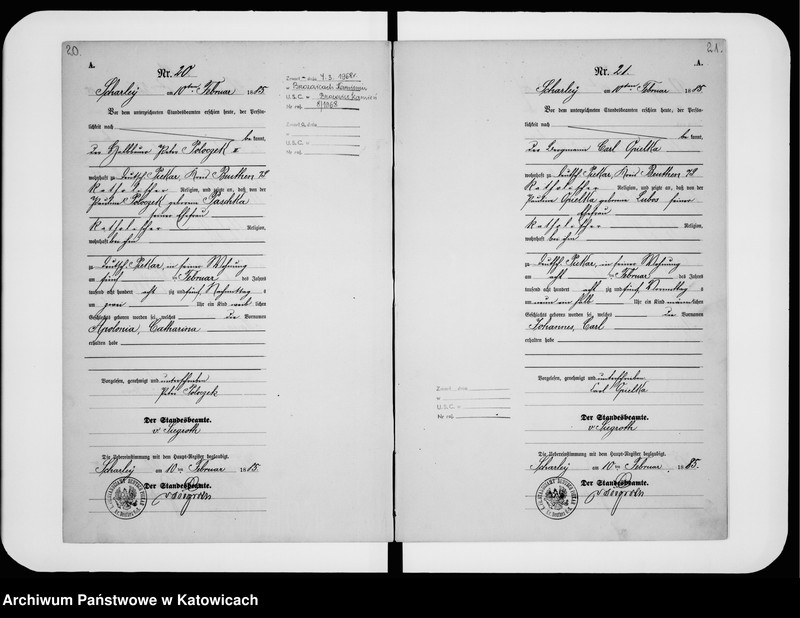 20.
A.
Nr. 20
Scharley am 10ten Februar 1885
Vor dem unterzeichneten Standesbeamten erschien heute, der Persön-
lichkeit nach
be kannt,
der Peter Pologek
wohnhaft zu Deutsch Piekar, Kreis Beuthen
katholischer Religion, und zeigte an, daß von der
Pologek geborene Paschka
seiner Ehefrau
katholischer Religion,
wohnhaft bei ihm
zu Deutsch Piekar, in seiner Wohnung
am fünf ten Februar des Jahres
tausend acht hundert acht zig und fünf Nachmittag s
um zwei Uhr ein Kind weib lichen
Geschlechts geboren worden sei, welches die Vornamen
Apolonia, Catharina
erhalten habe
Vorgelesen, genehmigt und unterschrieben
Peter Pologek
Der Standesbeamte.
v. Siegroth
Die Uebereinstimmung mit dem Haupt-Register beglaubigt.
Scharley am 10ten Februar 1885.
Der Standesbeamte.
v. Siegroth
Zmarł - dnia 7.3.1968r.
w
U.S.C. w
Nr rej. 8/1968
Zmarł - dnia
w
U.S.C. w
Nr rej.
21.
A.
Nr. 21
Scharley am 10ten Februar 1885
Vor dem unterzeichneten Standesbeamten erschien heute, der Persön-
lichkeit nach
be kannt,
der Bergmann Carl Opielka
wohnhaft zu Deutsch Piekar, Kreis Beuthen
katholischer Religion, und zeigte an, daß von der
Pauline Opielka geborene Lubos seiner
Ehefrau
katholischer Religion,
wohnhaft bei ihm
zu Deutsch Piekar, in seiner Wohnung
am acht ten Februar des Jahres
tausend acht hundert acht zig und fünf Vormittag s
um neun ein halb Uhr ein Kind männ lichen
Geschlechts geboren worden sei, welches die Vornamen
Johannes, Carl
erhalten habe
Vorgelesen, genehmigt und unterschrieben
Carl Opielka
Der Standesbeamte.
v. Siegroth
Die Uebereinstimmung mit dem Haupt-Register beglaubigt.
Scharley am 10ten Februar 1885.
Der Standesbeamte.
v. Siegroth
Zmarł - dnia
w
U.S.C. w
Nr rej.
Archiwum Państwowe w Katowicach